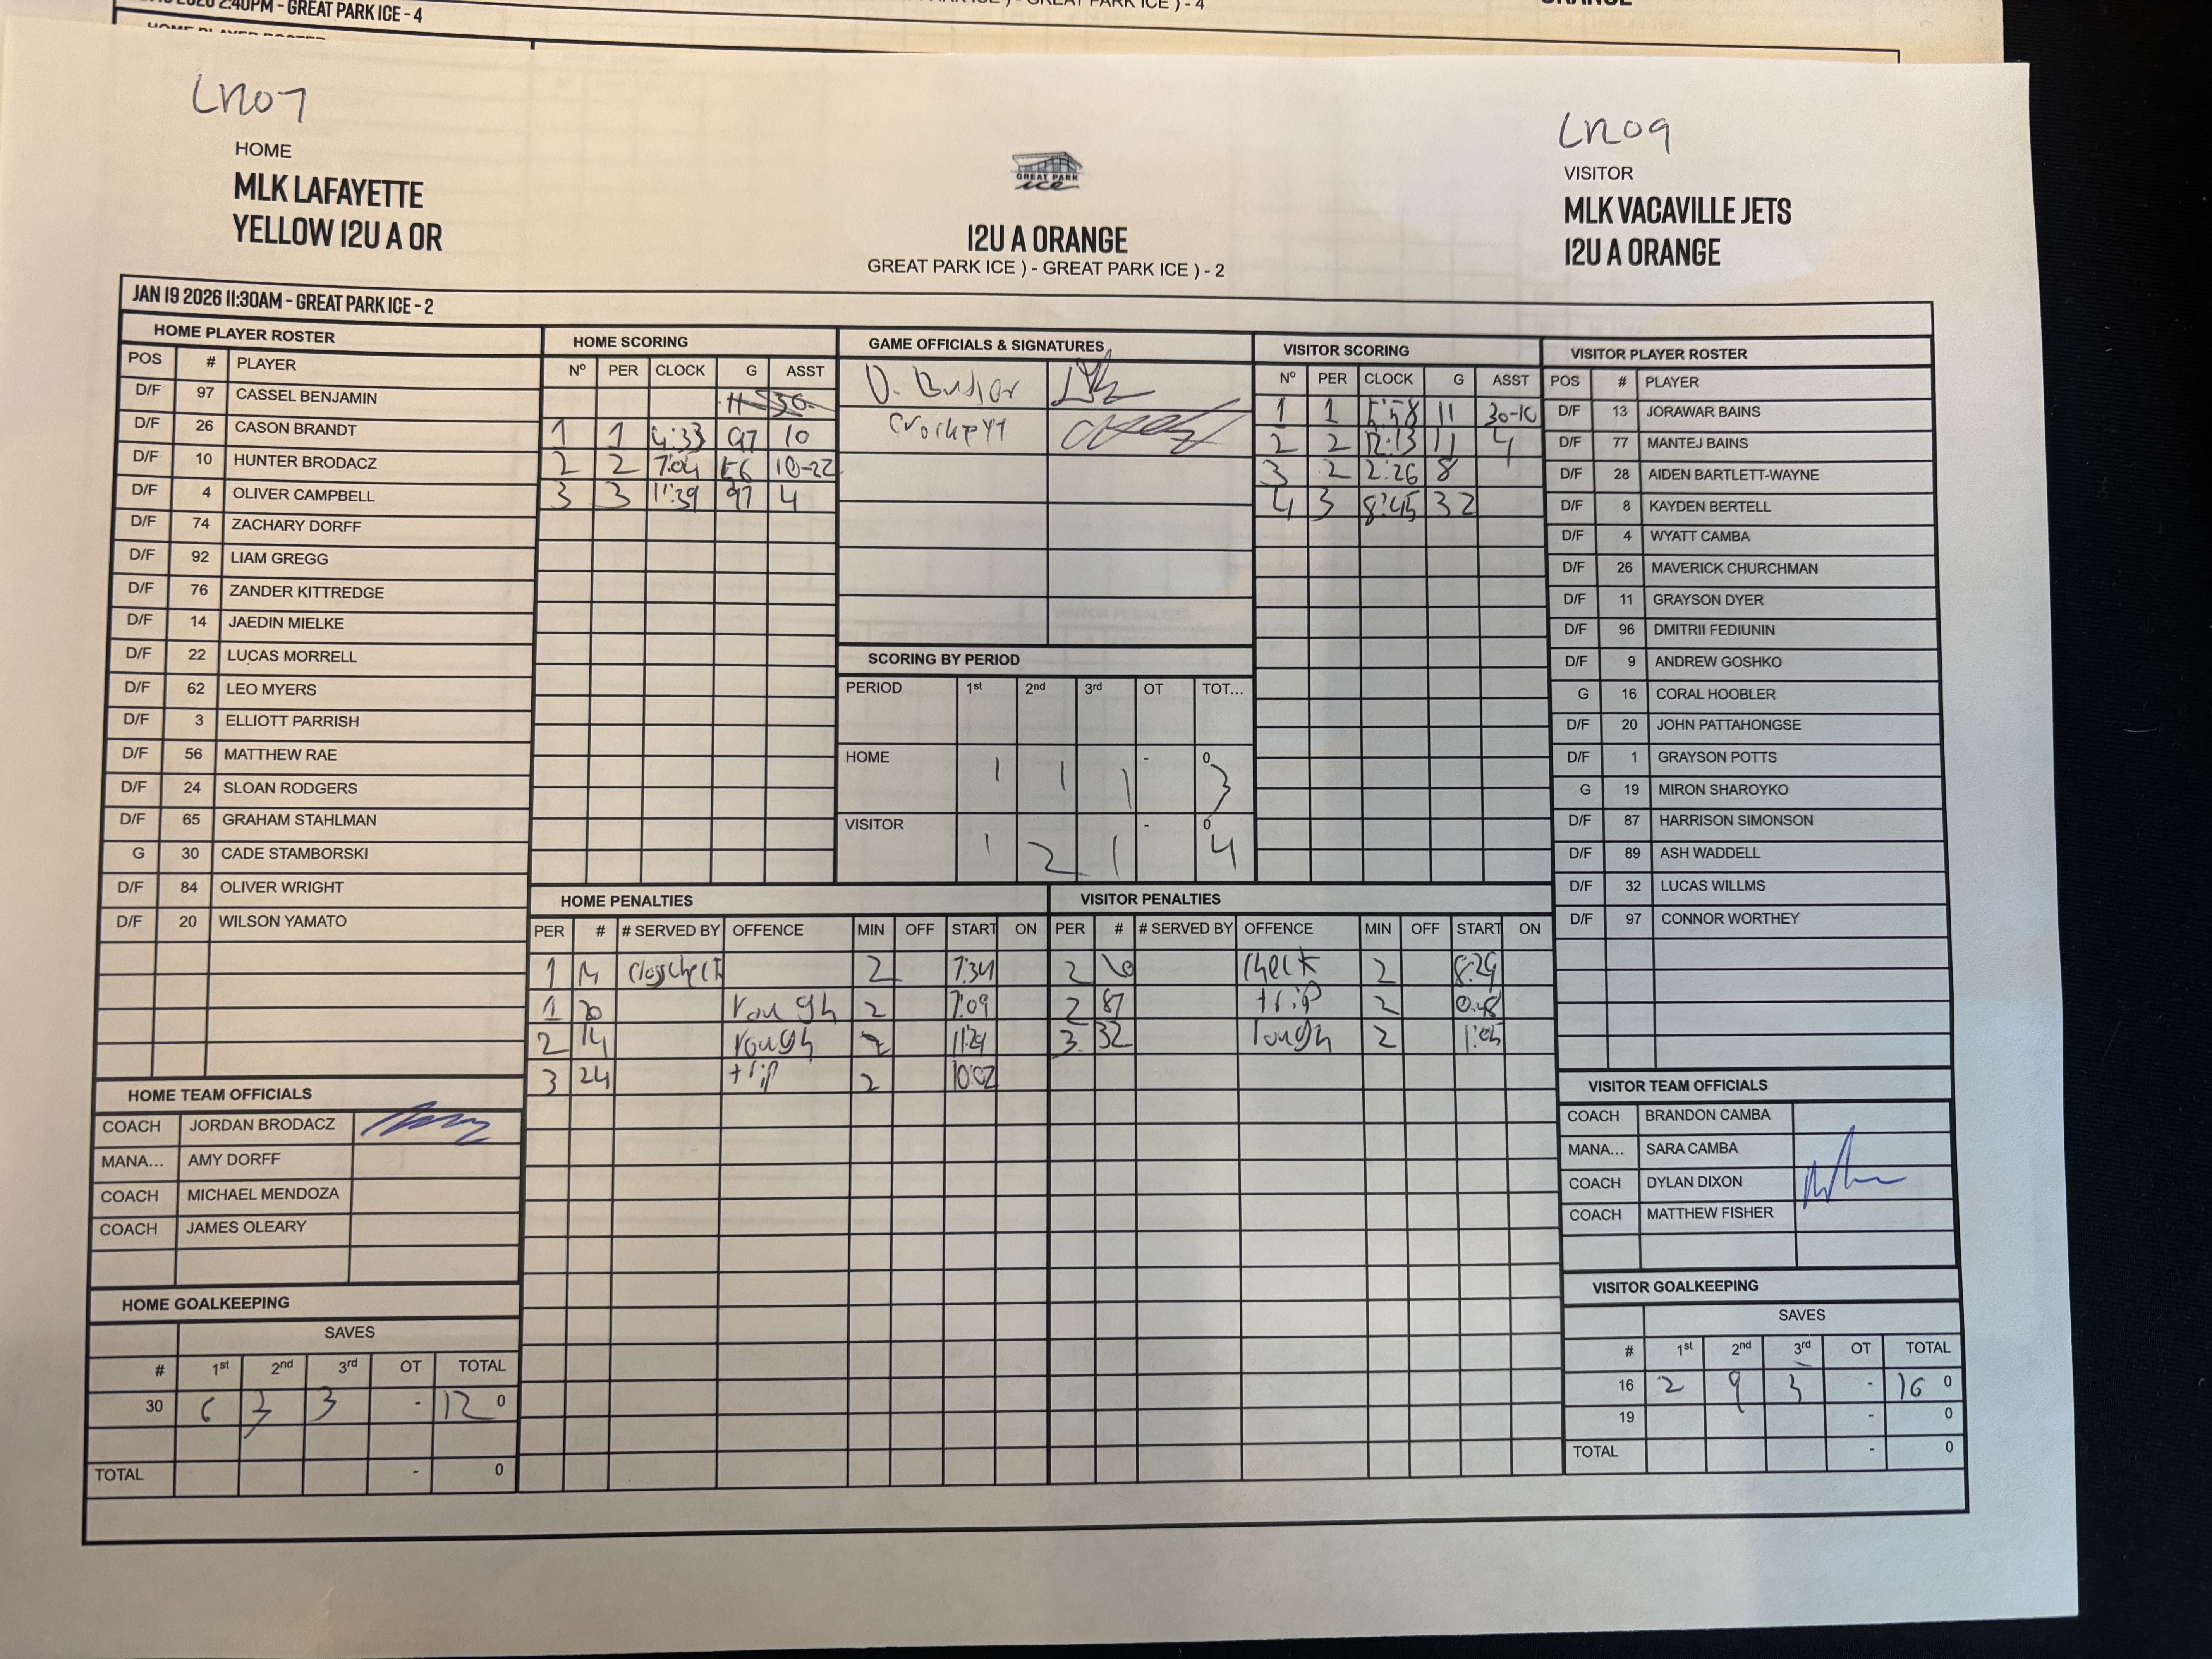 2:40PM - GREAT PARK ICE - 4
GREAT PARK ICE ) - 4
ORANGE
HOME PLAYER ROSTER
LR07
LR09
HOME
MLK LAFAYETTE
YELLOW 12U A OR
GREAT PARK
ice
12U A ORANGE
GREAT PARK ICE ) - GREAT PARK ICE ) - 2
VISITOR
MLK VACAVILLE JETS
12U A ORANGE
JAN 19 2026 11:30AM - GREAT PARK ICE - 2
HOME PLAYER ROSTER
POS # PLAYER
D/F 97 CASSEL BENJAMIN
D/F 26 CASON BRANDT
D/F 10 HUNTER BRODACZ
D/F 4 OLIVER CAMPBELL
D/F 74 ZACHARY DORFF
D/F 92 LIAM GREGG
D/F 76 ZANDER KITTREDGE
D/F 14 JAEDIN MIELKE
D/F 22 LUCAS MORRELL
D/F 62 LEO MYERS
D/F 3 ELLIOTT PARRISH
D/F 56 MATTHEW RAE
D/F 24 SLOAN RODGERS
D/F 65 GRAHAM STAHLMAN
G 30 CADE STAMBORSKI
D/F 84 OLIVER WRIGHT
D/F 20 WILSON YAMATO
HOME SCORING
Nº PER CLOCK G ASST
11 30
1 1 4:33 97 10
2 2 7:04 56 10-22
3 3 11:39 97 4
GAME OFFICIALS & SIGNATURES
SCORING BY PERIOD
PERIOD 1st 2nd 3rd OT TOT...
HOME 1 1 1 - 0 3
VISITOR 1 2 1 - 0 4
VISITOR SCORING
Nº PER CLOCK G ASST
1 1 5:58 11 30-10
2 2 12:13 11 4
3 2 2:26 8
4 3 8:45 32
VISITOR PLAYER ROSTER
POS # PLAYER
D/F 13 JORAWAR BAINS
D/F 77 MANTEJ BAINS
D/F 28 AIDEN BARTLETT-WAYNE
D/F 8 KAYDEN BERTELL
D/F 4 WYATT CAMBA
D/F 26 MAVERICK CHURCHMAN
D/F 11 GRAYSON DYER
D/F 96 DMITRII FEDIUNIN
D/F 9 ANDREW GOSHKO
G 16 CORAL HOOBLER
D/F 20 JOHN PATTAHONGSE
D/F 1 GRAYSON POTTS
G 19 MIRON SHAROYKO
D/F 87 HARRISON SIMONSON
D/F 89 ASH WADDELL
D/F 32 LUCAS WILLMS
D/F 97 CONNOR WORTHEY
HOME PENALTIES
PER # # SERVED BY OFFENCE MIN OFF START ON
1 14 2 7:34
1 20 rough 2 7:09
2 14 rough 2 11:29
3 24 trip 2 10:02
VISITOR PENALTIES
PER # # SERVED BY OFFENCE MIN OFF START ON
2 check 2 8:29
2 87 trip 2 0:48
3 32 rough 2 1:05
HOME TEAM OFFICIALS
COACH JORDAN BRODACZ
MANA... AMY DORFF
COACH MICHAEL MENDOZA
COACH JAMES OLEARY
HOME GOALKEEPING
SAVES
# 1st 2nd 3rd OT TOTAL
30 6 3 3 - 12 0
TOTAL - 0
VISITOR TEAM OFFICIALS
COACH BRANDON CAMBA
MANA... SARA CAMBA
COACH DYLAN DIXON
COACH MATTHEW FISHER
VISITOR GOALKEEPING
SAVES
# 1st 2nd 3rd OT TOTAL
16 2 9 3 - 16 0
19 - 0
TOTAL - 0